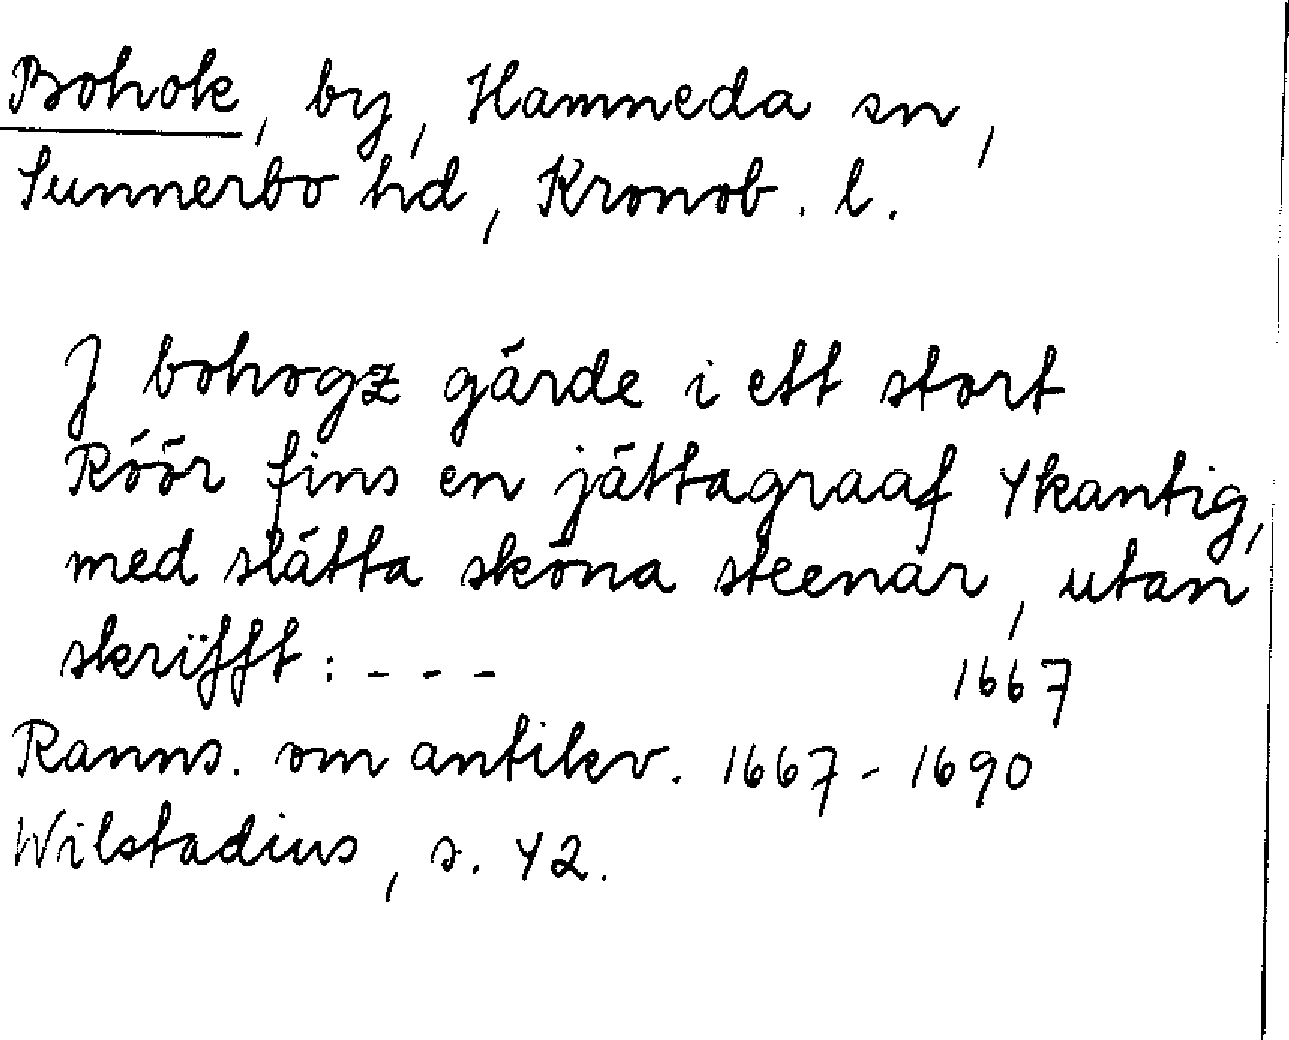 Bohok, by, Hamneda sn,
Sunnerbo hd, Kronob. l.
J bohogz gärde i ett stort
Röör fins en jättagraaf 4kantig,
med slätta sköna steenar, utan
skrifft: - - - 1667
Ranns. om antikv. 1667 - 1690
Wilstadius, s. 42.